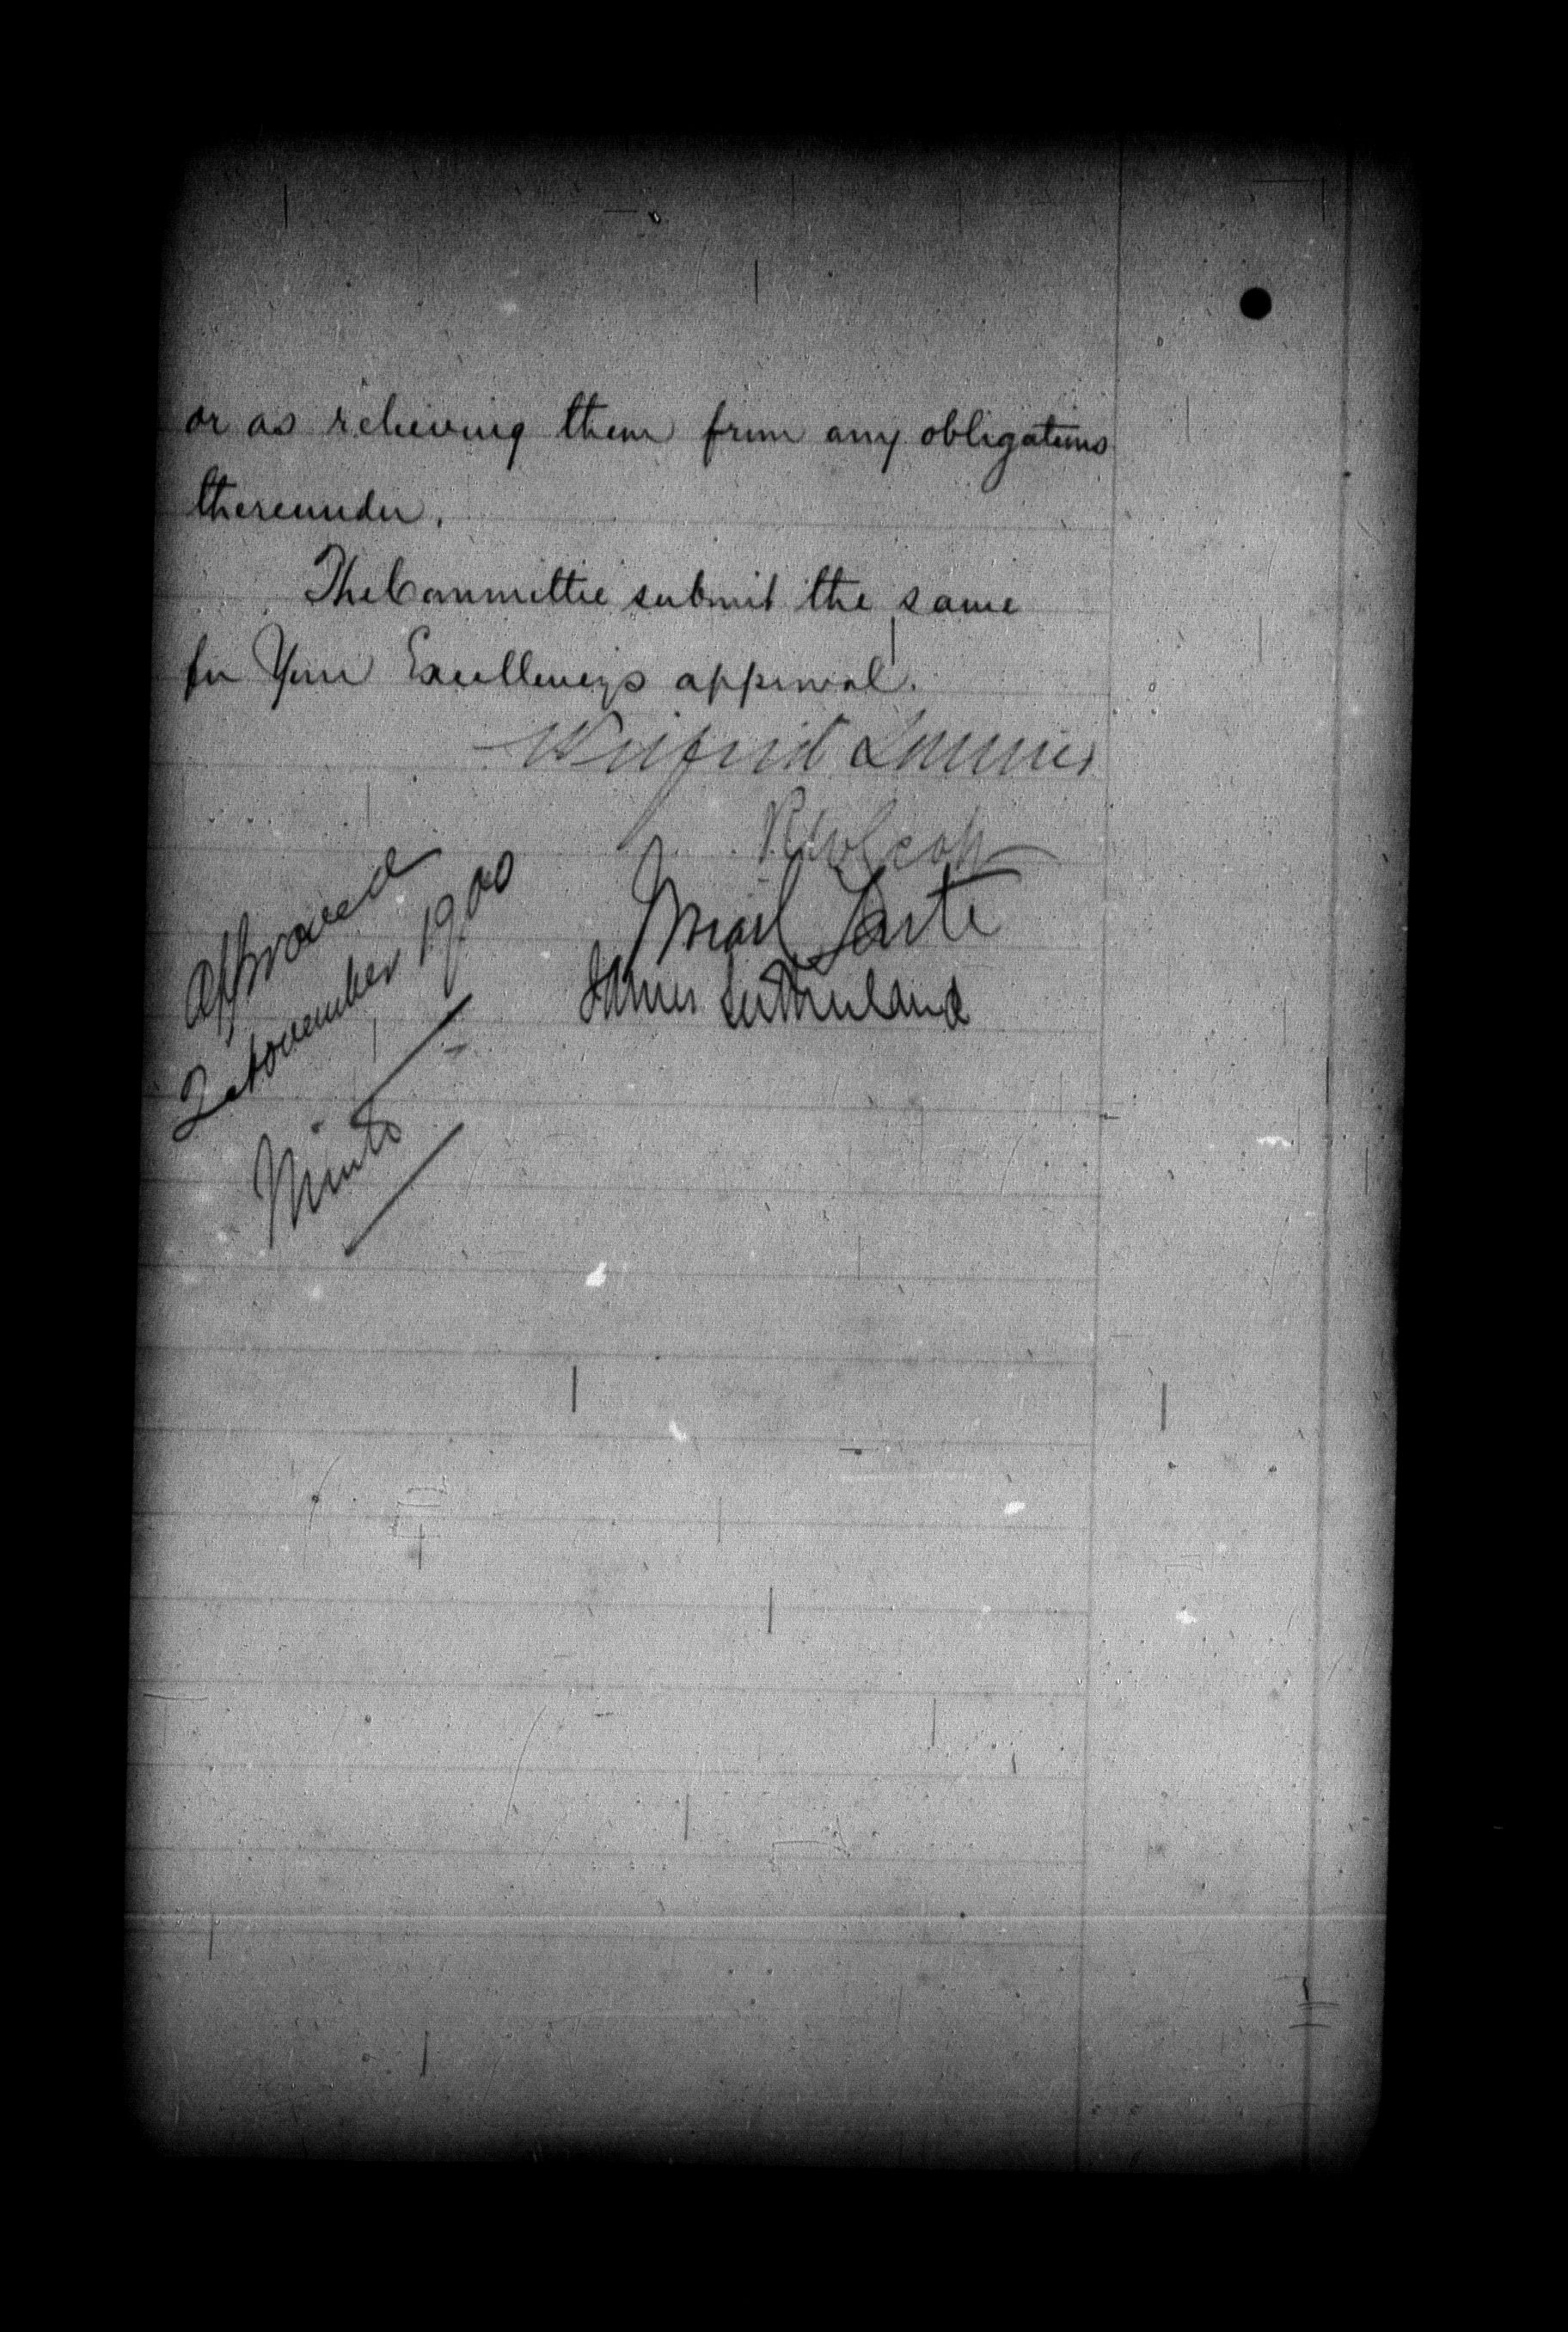 or as relieving them from any obligations
thereunder.
The Committee submit the same
for Your Excellency's approval.
Wilfrid Laurier
RWScott
J Israel Tarte
James Sutherland
Approved
2 November 1900
Minto